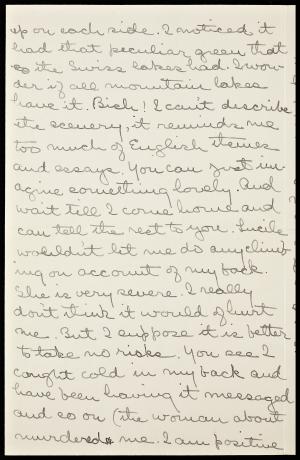 up on each side. I noticed it
had that peculiar green that
the Swiss lakes had. I won-
der if all mountain lakes
have it. Bich! I can't describe
the scenery, it reminds me
too much of English items
and essays. You can just im-
agine something lovely. And
wait till I come home and
can tell the rest to you. Lucile
wouldn't let me do any climb
ing on account of my back.
She is very severe. I really
dont think it would of hurt
me. But I suppose it is better
to take no risks. You see I
caught cold in my back and
have been having it messaged
and so on (the woman about
murdered me. I am positive